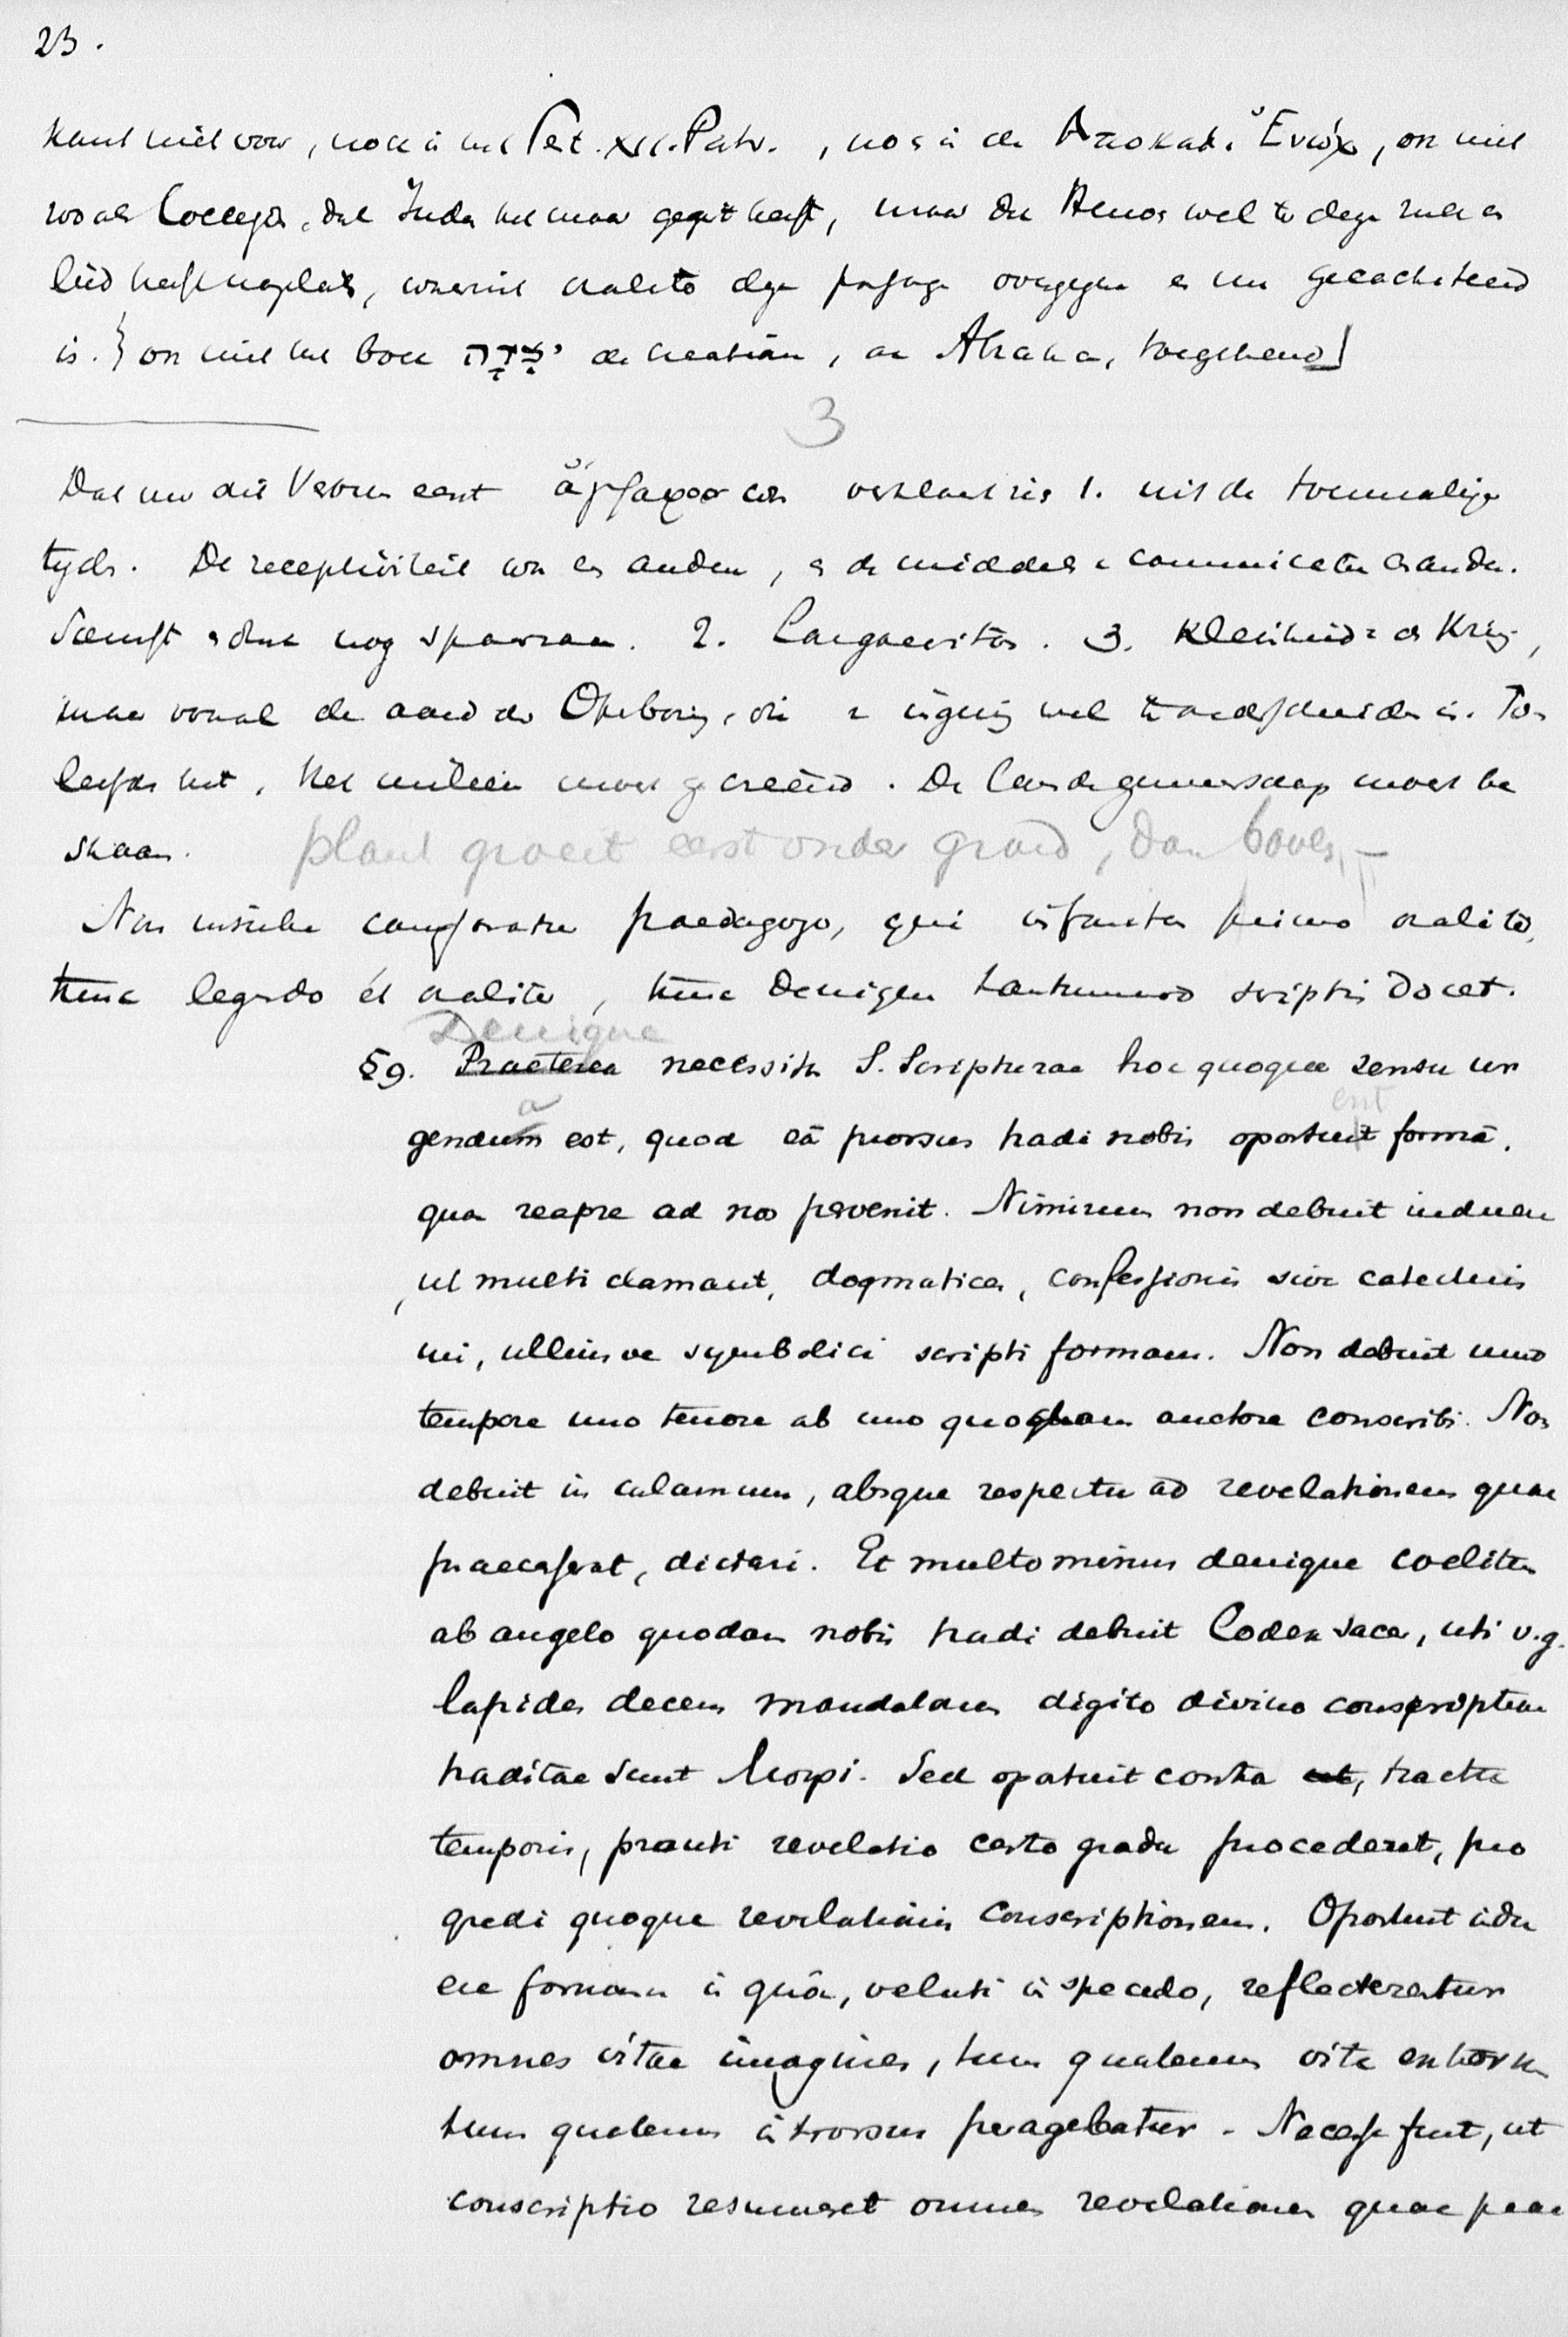 23.
komt niet voor, noch in het Test. XII. Patr., noch in de Ἀποκαλ. Ἐνώχ, en niet
zoo als Coccejus, dat Juda het maar gezegd heeft, maar dat Henoch wel te dege zulk een
lied heeft nagelaten, waaruit oraliter deze passage overgegaan en nu gecanoniseerd
is. } en niet het boek יְצִרָה de creatione, aan Abraham toegekend]
3
Dat nu dit Verbum eerst ἄγραφος was verklaart zich 1. uit de toenmalige
tijds. De receptiviteit was een andere, en de middelen communicatie een andere.
Schrift en druk nog spaarzaam. 2. Longaevitas. 3. Kleinheid van den Kring,
maar vooral de aard der Openbaring, die van ingeving wel te onderscheiden is. Ze
leefde het. Het milieu moest gecreëerd. De Landsgemeenschap moest be
staan. plant groeit eerst onder grond, dan boven, —
Non inscite comparatur paedagogo, qui infantes primo oraliter,
tunc legendo et oraliter, tunc denique tantummodo scriptis docet.
Denique
§9. Praeterea necessitas S. Scripturae hoc quoque sensu ur
a ent
gendum est, quod eâ prorsus tradi nobis oportuit formâ,
qua reapse ad nos pervenit. Nimirum non debuit induere
, ut multi clamant, dogmatices, confessionis sive catechis
mi, ulliusve symbolici scripti formam. Non debuit uno
tempore uno tenore ab uno quoquam auctore conscribi. Non
debuit in calamum, absque respectu ad revelationem quae
praecesserat, dictari. Et multo minus denique coelitus
ab angelo quodam nobis tradi debuit Codex sacer, uti v.g.
lapides decem mandatorum digito divino conscriptum
traditae sunt Mosi. Sed oportuit contra ut, tractu
temporis, prouti revelatio certo gradu procederet, pro
gredi quoque revelationis conscriptionem. Oportuit indu
ere formam in quâ, veluti in speculo, reflecterentur
omnes vitae imagines, tum quatenus vita extrorsum
tum quatenus introrsum peragebatur. Necesse fuit, ut
conscriptio resumeret omnes revelationes quae prae